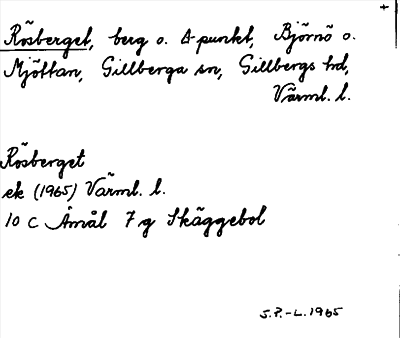 Rösberget, berg o. Δ-punkt, Björnö o.
Mjöttan, Gillberga sn, Gillbergs hd,
Värml. l.
Rösberget
ek (1965) Värml. l.
10 C Åmål 7 g Skäggebol
S.P.-L. 1965